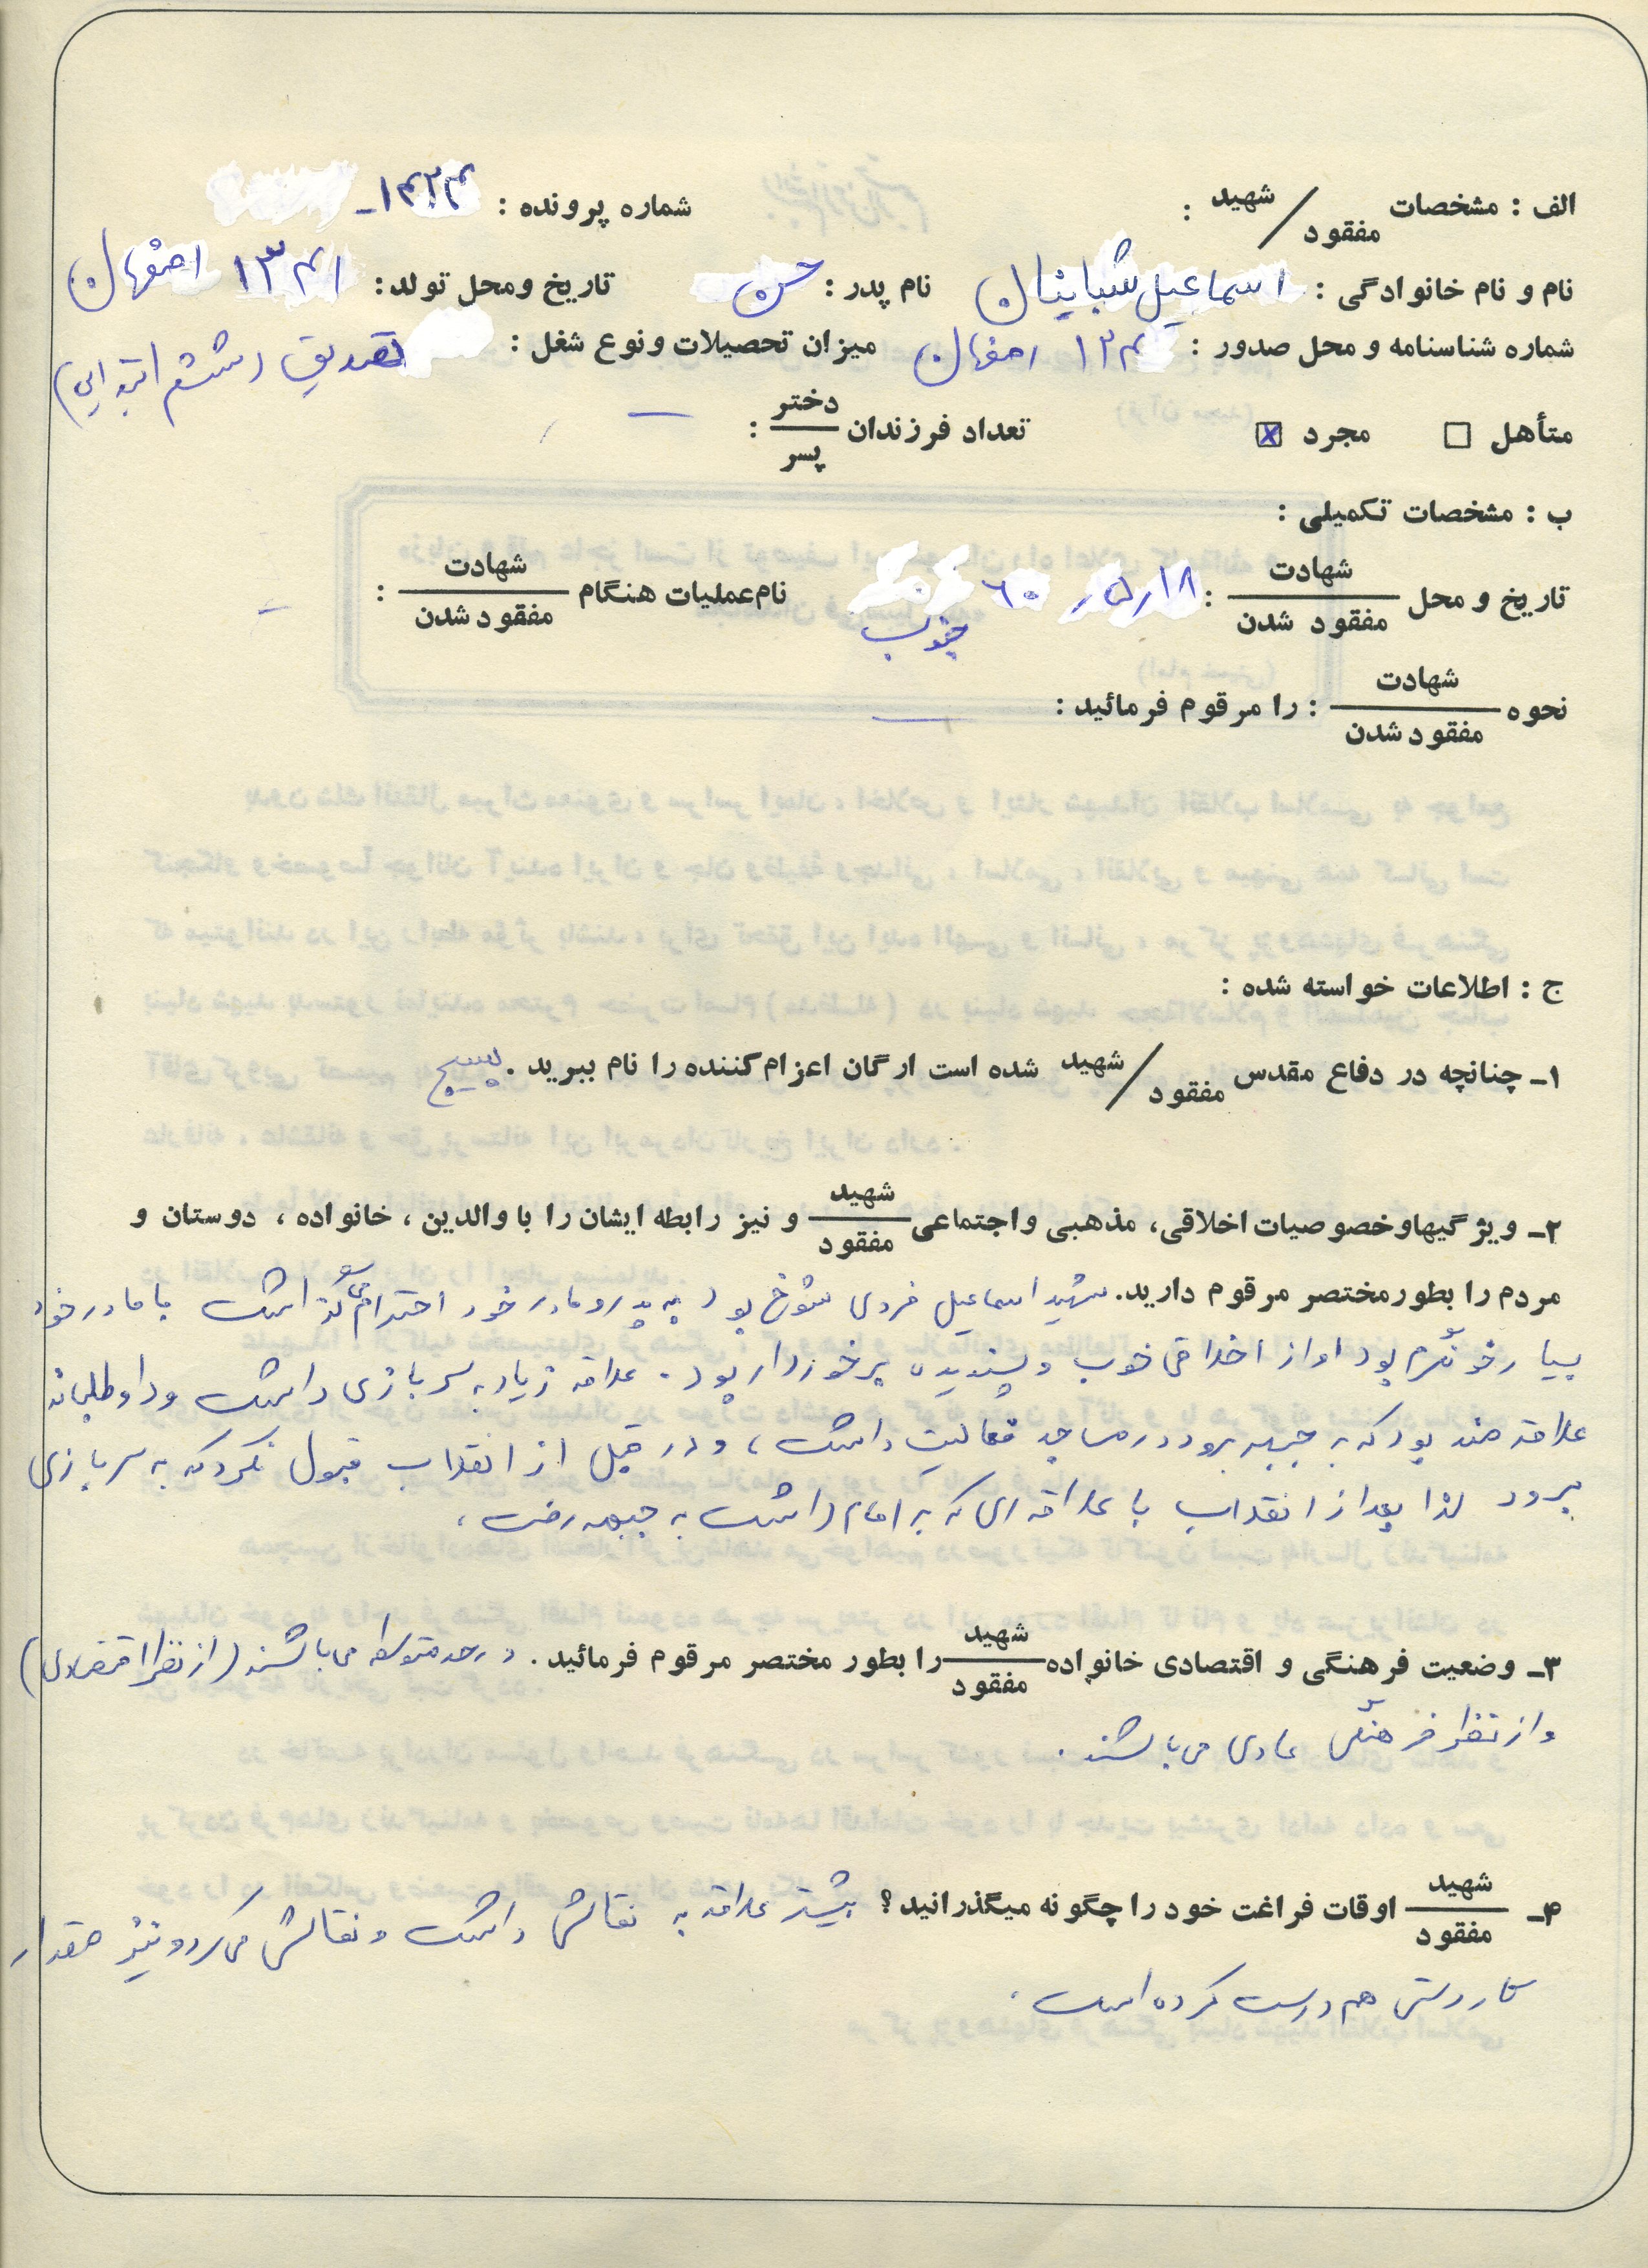 الف : مشخصات شهید / مفقود : شماره پرونده : ۱۴۲۴-
نام و نام خانوادگی : اسماعیل شبانیان نام پدر : حسن تاریخ ومحل تولد : ۱۳۴۱ اصفهان
شماره شناسنامه و محل صدور : ۱۲۴ اصفهان میزان تحصیلات ونوع شغل : تصدیق (ششم ابتدایی)
متأهل ☐ مجرد ☒ تعداد فرزندان دختر / پسر : —
ب : مشخصات تکمیلی :
تاریخ و محل شهادت / مفقود شدن : ۱۸/۵/۶۰ نام عملیات هنگام شهادت / مفقود شدن : –
جنوب
نحوه شهادت / مفقود شدن : را مرقوم فرمائید : —
ج : اطلاعات خواسته شده :
۱- چنانچه در دفاع مقدس شهید / مفقود شده است ارگان اعزام کننده را نام ببرید . بسیج
۲- ویژگیها و خصوصیات اخلاقی، مذهبی واجتماعی شهید / مفقود و نیز رابطه ایشان را با والدین ، خانواده ، دوستان و
مردم را بطور مختصر مرقوم دارید. شهید اسماعیل فردی شوخ بود به پدر و مادر خود احترام می گذاشت با مادر خود
بسیار خونگرم بود او از اخلاقی خوب و پسندیده برخوردار بود . علاقه زیاد به سربازی داشت و داوطلبانه
علاقه مند بود که به جبهه برود در مساجد فعالیت داشت ، و در قبل از انقلاب قبول نکرد که به سربازی
برود لذا بعد از انقلاب با علاقه ای که به امام داشت به جبهه رفت .
۳- وضعیت فرهنگی و اقتصادی خانواده شهید / مفقود را بطور مختصر مرقوم فرمائید . در حد متوسط می باشند (از نظر اقتصادی)
و از نظر فرهنگی عادی می باشند .
۴- شهید / مفقود اوقات فراغت خود را چگونه میگذرانید ؟ بیشتر علاقه به نقاشی داشت و نقاشی می کرد و نیز مقدار
کار دستی هم درست کرده است .